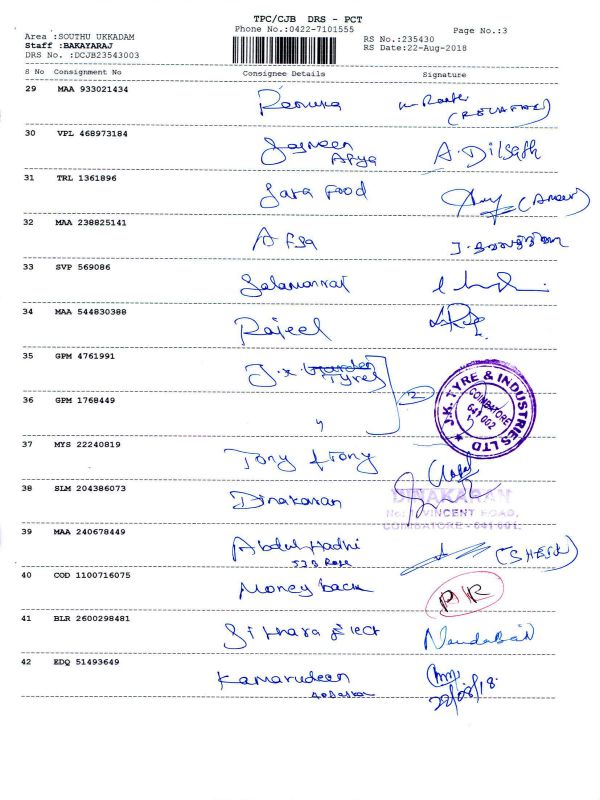 TPC/CJB DRS - PCT
Phone No.:0422-7101555
Page No.:3
Area :SOUTHU UKKADAM
Staff :BAKAYARAJ
DRS No. :DCJB23543003
RS No.:235430
RS Date:22-Aug-2018
S No Consignment No Consignee Details Signature
29 MAA 933021434 Renuka
30 VPL 468973184 Jasneen A. Dilsath
Arya
31 TRL 1361896 Sara Food
32 MAA 238825141 Afsa
33 SVP 569086
34 MAA 544830388 Rajeel
35 GPM 4761991 J.K Tyres
2
J.K. TYRE & INDUSTRIES LTD
COIMBATORE
641 002
36 GPM 1768449 "
37 MYS 22240819 Tony & Tony
38 SLM 204386073 Dinakaran
DINAKARAN
VINCENT ROAD,
COIMBATORE - 641 001.
39 MAA 240678449 Abdul Hadhi
40 COD 1100716075 Money back
41 BLR 2600298481 Sithara Elect
42 EDQ 51493649 Kamarudeen
22/08/18